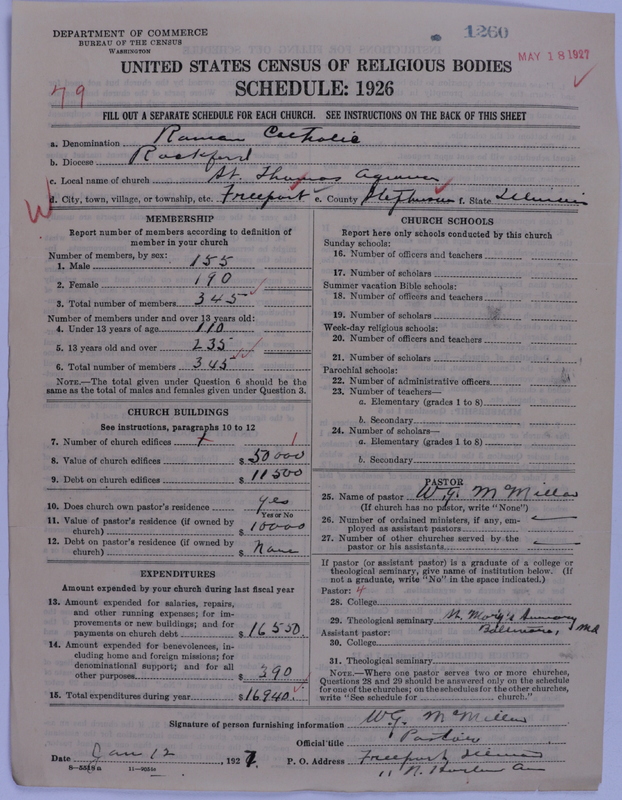 DEPARTMENT OF COMMERCE
BUREAU OF THE CENSUS
WASHINGTON
1260
MAY 18 1927
UNITED STATES CENSUS OF RELIGIOUS BODIES
SCHEDULE: 1926
79
FILL OUT A SEPARATE SCHEDULE FOR EACH CHURCH. SEE INSTRUCTIONS ON THE BACK OF THIS SHEET
a. Denomination Roman Catholic
b. Diocese Rockford
c. Local name of church St. Thomas Aquinas
d. City, town, village, or township, etc. Freeport e. County Stephenson f. State Illinois
W
MEMBERSHIP
Report number of members according to definition of
member in your church
Number of members, by sex:
1. Male 155
2. Female 190
3. Total number of members 345
Number of members under and over 13 years old:
4. Under 13 years of age 110
5. 13 years old and over 235
6. Total number of members 345
NOTE.—The total given under Question 6 should be the
same as the total of males and females given under Question 3.
CHURCH BUILDINGS
See instructions, paragraphs 10 to 12
7. Number of church edifices 1
8. Value of church edifices $ 50000
9. Debt on church edifices $ 11500
10. Does church own pastor's residence Yes
Yes or No
11. Value of pastor's residence (if owned by
church) $ 10000
12. Debt on pastor's residence (if owned by
church) $ None
EXPENDITURES
Amount expended by your church during last fiscal year
13. Amount expended for salaries, repairs,
and other running expenses; for im-
provements or new buildings; and for
payments on church debt $ 16550.
14. Amount expended for benevolences, in-
cluding home and foreign missions; for
denominational support; and for all
other purposes $ 390
15. Total expenditures during year $ 16940.
CHURCH SCHOOLS
Report here only schools conducted by this church
Sunday schools:
16. Number of officers and teachers
17. Number of scholars
Summer vacation Bible schools:
18. Number of officers and teachers
19. Number of scholars
Week-day religious schools:
20. Number of officers and teachers
21. Number of scholars
Parochial schools:
22. Number of administrative officers
23. Number of teachers—
a. Elementary (grades 1 to 8)
b. Secondary
24. Number of scholars—
a. Elementary (grades 1 to 8)
b. Secondary
PASTOR
25. Name of pastor W. G. McMillan
(If church has no pastor, write "None")
26. Number of ordained ministers, if any, em-
ployed as assistant pastors
27. Number of other churches served by the
pastor or his assistants
If pastor (or assistant pastor) is a graduate of a college or
theological seminary, give name of institution below. (If
not a graduate, write "No" in the space indicated.)
Pastor: 4
28. College
29. Theological seminary St. Mary's Seminary
Baltimore, Md
Assistant pastor:
30. College
31. Theological seminary
NOTE.—Where one pastor serves two or more churches,
Questions 28 and 29 should be answered only on the schedule
for one of the churches; on the schedules for the other churches,
write "See schedule for church."
Signature of person furnishing information W. G. McMillan
Official title Pastor
Date Jan 12, 1927. P. O. Address Freeport, Illinois
8-5518a 11-9051a
11 N. Harlem Ave